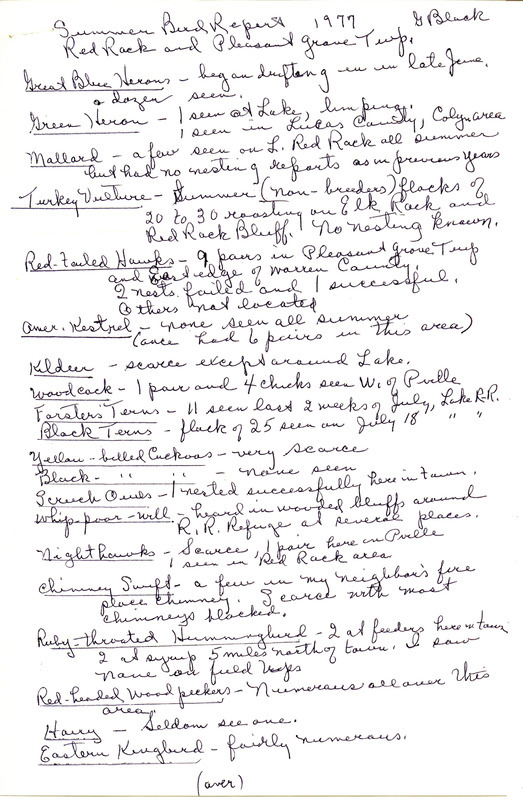 Summer Bird Report 1977 G Black
Red Rock and Pleasant grove Twp.
Great Blue Herons - began drifting in in late June.
a dozen seen.
Green Heron - 1 seen at Lake, limping.
1 seen in Lucas County, Colyn area
Mallard - a few seen on L. Red Rock all summer
but had no nesting reports as in previous years
Turkey Vulture - Summer (non-breeders) flocks of
20 to 30 roosting on Elk Rock and
Red Rock Bluff. No nesting known.
Red-tailed Hawks - 9 pairs in Pleasant grove Twp
and East edge of Warren County.
2 nests failed and 1 successful.
Others not located
Amer. Kestrel - none seen all summer
(once had 6 pairs in this area)
Kildeer - scarce except around Lake.
Woodcock - 1 pair and 4 chicks seen W. of Pville
Forster's Terns - 11 seen last 2 weeks of July, Lake R.R.
Black Terns - flock of 25 seen on July 18 " "
Yellow-billed Cuckoos - very scarce
Black- " " - none seen
Screech Owls - 1 nested successfully here in town.
Whip-poor-will - heard in wooded bluffs around
R.R. Refuge at several places.
Nighthawks - Scarce, 1 pair here on Pville
1 seen in Red Rock area
Chimney Swift - a few in my neighbor's fire
place chimney. Scarce with most
chimneys blocked.
Ruby-throated Hummingbird - 2 at feeders here in town
2 at syrup 5 miles north of town. I saw
none on field trips
Red-headed Woodpeckers - Numerous all over this
area.
Hairy - Seldom see one.
Eastern Kingbird - fairly numerous.
(over)